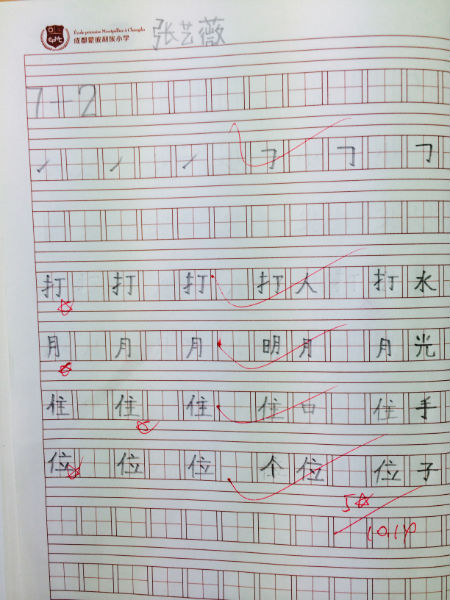 École primaire Montpellier à Chengdu
成都蒙彼利埃小学
张艺薇
7+2
打 打 打 打人 打水
月 月 月 明月 月光
住 住 住 住 住手
位 位 位 个位 位子
5☆